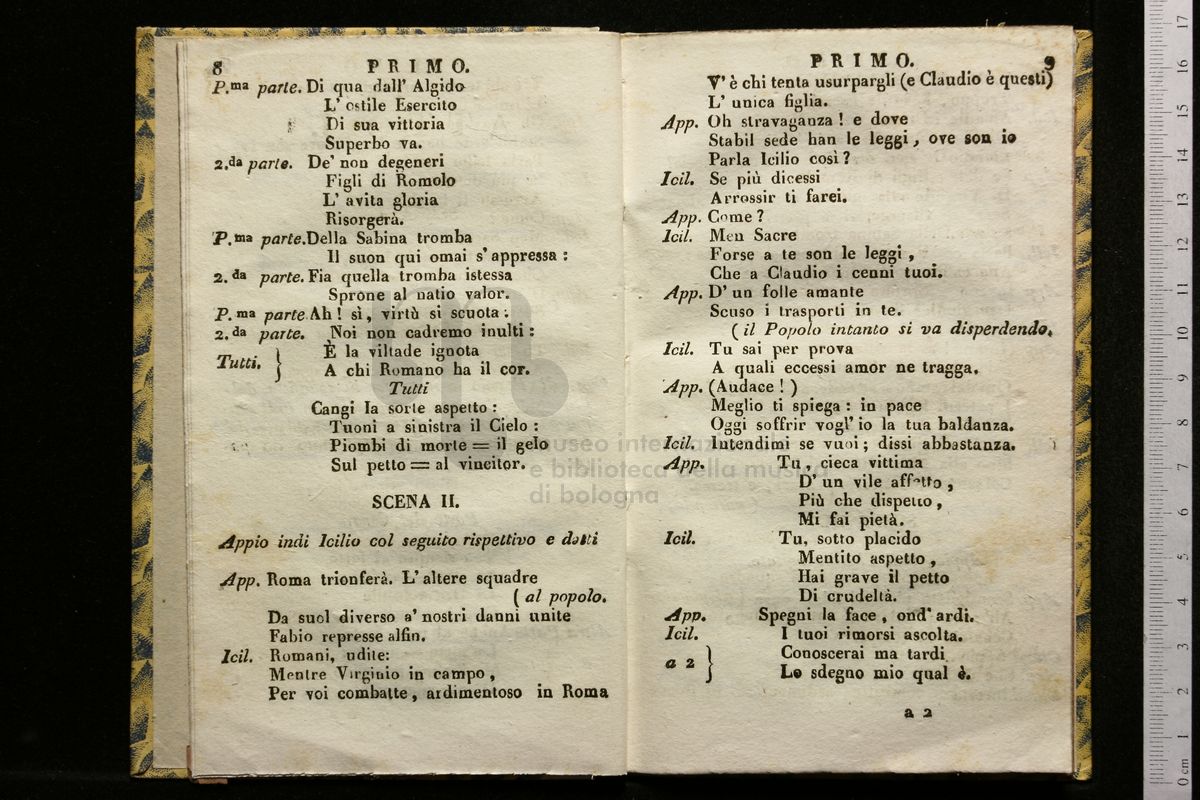 8 PRIMO.
P.ma parte. Di qua dall' Algido
L' ostile Esercito
Di sua vittoria
Superbo va.
2.da parte. De' non degeneri
Figli di Romolo
L' avita gloria
Risorgerà.
P.ma parte. Della Sabina tromba
Il suon qui omai s' appressa :
2.da parte. Fia quella tromba istessa
Sprone al natio valor.
P.ma parte Ah ! sì, virtù si scuota :
2.da parte. Noi non cadremo inulti :
Tutti. } È la viltade ignota
A chi Romano ha il cor.
Tutti
Cangi la sorte aspetto :
Tuoni a sinistra il Cielo :
Piombi di morte = il gelo
Sul petto = al vincitor.
SCENA II.
Appio indi Icilio col seguito rispettivo e detti
App. Roma trionferà. L' altere squadre
( al popolo.
Da suol diverso a' nostri danni unite
Fabio represse alfin.
Icil. Romani, udite:
Mentre Virginio in campo ,
Per voi combatte, ardimentoso in Roma
PRIMO. 9
V' è chi tenta usurpargli (e Claudio è questi)
L' unica figlia.
App. Oh stravaganza ! e dove
Stabil sede han le leggi, ove son io
Parla Icilio così ?
Icil. Se più dicessi
Arrossir ti farei.
App. Come ?
Icil. Men Sacre
Forse a te son le leggi ,
Che a Claudio i cenni tuoi.
App. D' un folle amante
Scuso i trasporti in te.
( il Popolo intanto si va disperdendo.
Icil. Tu sai per prova
A quali eccessi amor ne tragga.
App. (Audace ! )
Meglio ti spiega : in pace
Oggi soffrir vogl' io la tua baldanza.
Icil. Intendimi se vuoi ; dissi abbastanza.
App. Tu, cieca vittima
D' un vile affetto ,
Più che dispetto ,
Mi fai pietà.
Icil. Tu, sotto placido
Mentito aspetto ,
Hai grave il petto
Di crudeltà.
App. Spegni la face , ond' ardi.
Icil. I tuoi rimorsi ascolta.
a 2 } Conoscerai ma tardi
Lo sdegno mio qual è.
a 2
museo internazionale
e biblioteca della musica
di bologna
0 cm 1 2 3 4 5 6 7 8 9 10 11 12 13 14 15 16 17